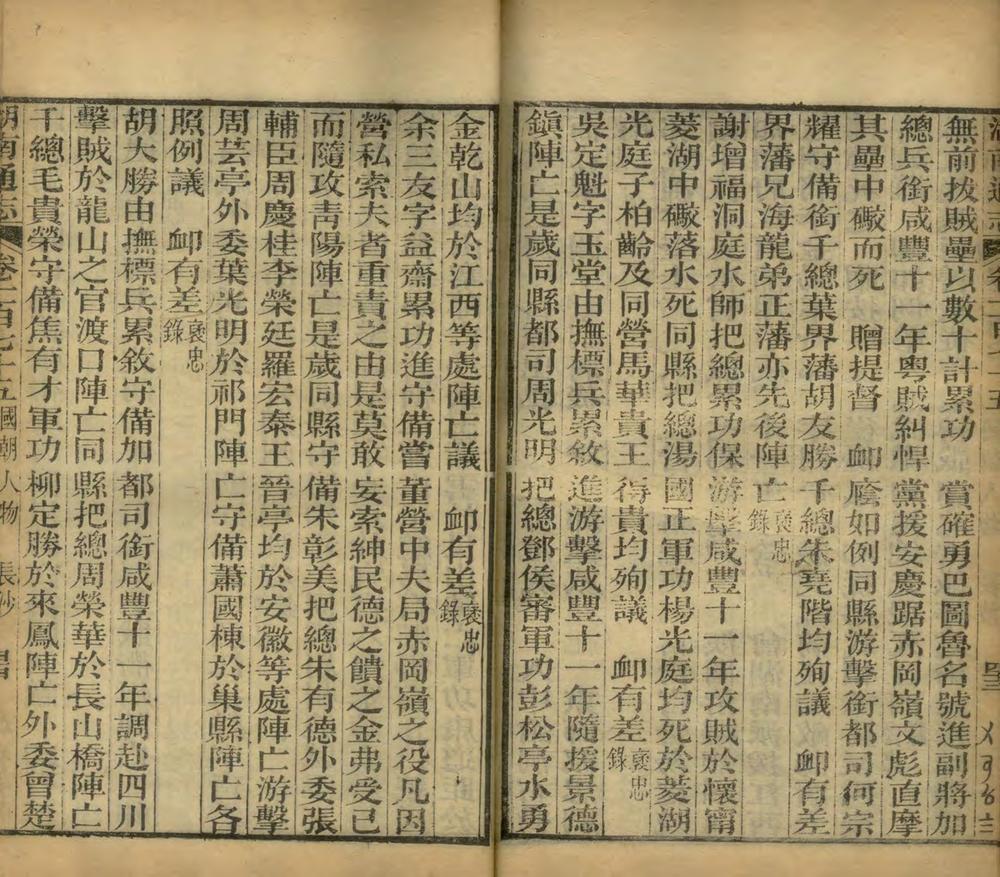 無前拔賊壘以數十計累功　賞確勇巴圖魯名號進副將加
總兵銜咸豐十一年粵賊糾悍黨援安慶踞赤岡嶺文彪直摩
其壘中礮而死　贈提督　卹廕如例同縣游擊銜都司何宗
耀守備銜千總葉界藩胡友勝千總朱堯階均殉議　卹有差
界藩兄海龍弟正藩亦先後陣亡襃忠錄
謝增福洞庭水師把總累功保游擊咸豐十一年攻賊於懷甯
菱湖中礮落水死同縣把總湯國正軍功楊光庭均死於菱湖
光庭子柏齡及同營馬華貴王得貴均殉議　卹有差襃忠錄
吳定魁字玉堂由撫標兵累敘進游擊咸豐十一年隨援景德
鎭陣亡是歲同縣都司周光明把總鄧侯審軍功彭松亭水勇
金乾山均於江西等處陣亡議　卹有差襃忠錄
余三友字益齋累功進守備嘗董營中夫局赤岡嶺之役凡因
營私索夫者重責之由是莫敢妄索紳民德之饋之金弗受已
而隨攻靑陽陣亡是歲同縣守備朱彰美把總朱有德外委張
輔臣周慶桂李榮廷羅宏泰王晉亭均於安徽等處陣亡游擊
周芸亭外委葉光明於祁門陣亡守備蕭國棟於巢縣陣亡各
照例議　卹有差襃忠錄
胡大勝由撫標兵累敘守備加都司銜咸豐十一年調赴四川
擊賊於龍山之官渡口陣亡同縣把總周榮華於長山橋陣亡
千總毛貴榮守備焦有才軍功柳定勝於來鳳陣亡外委曾楚
湖南通志　卷一百七十五國朝人物　長沙